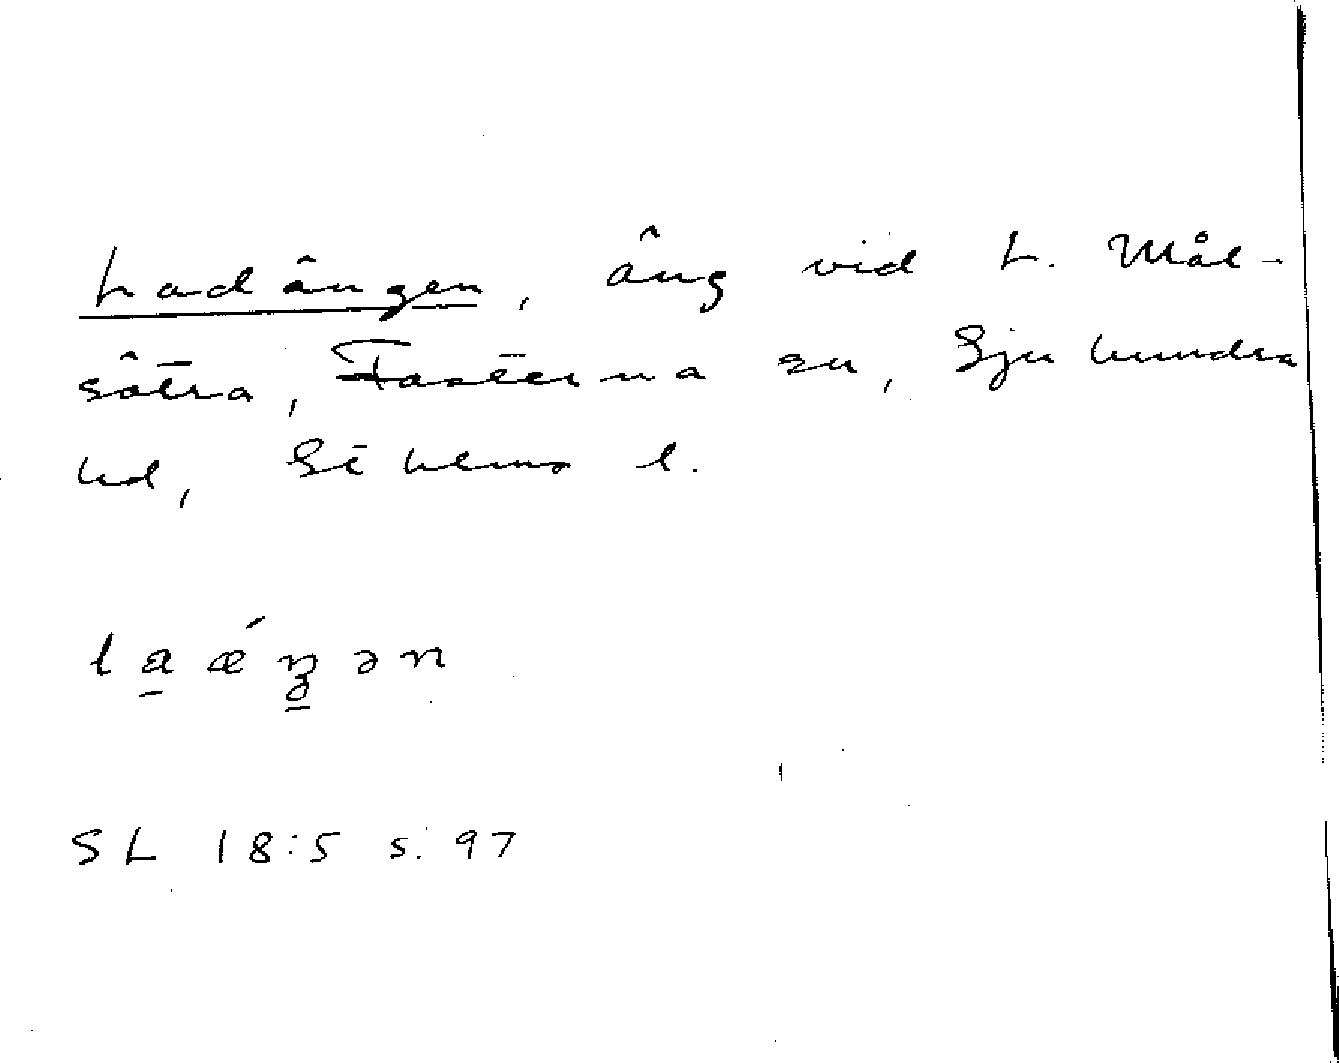 Ladängen, äng vid L. Mål-
sätra, Fasterna sn, Sjuhundra
hd, Sthlms l.
la̱ ǽŋ̱ən
SL 18:5 s. 97